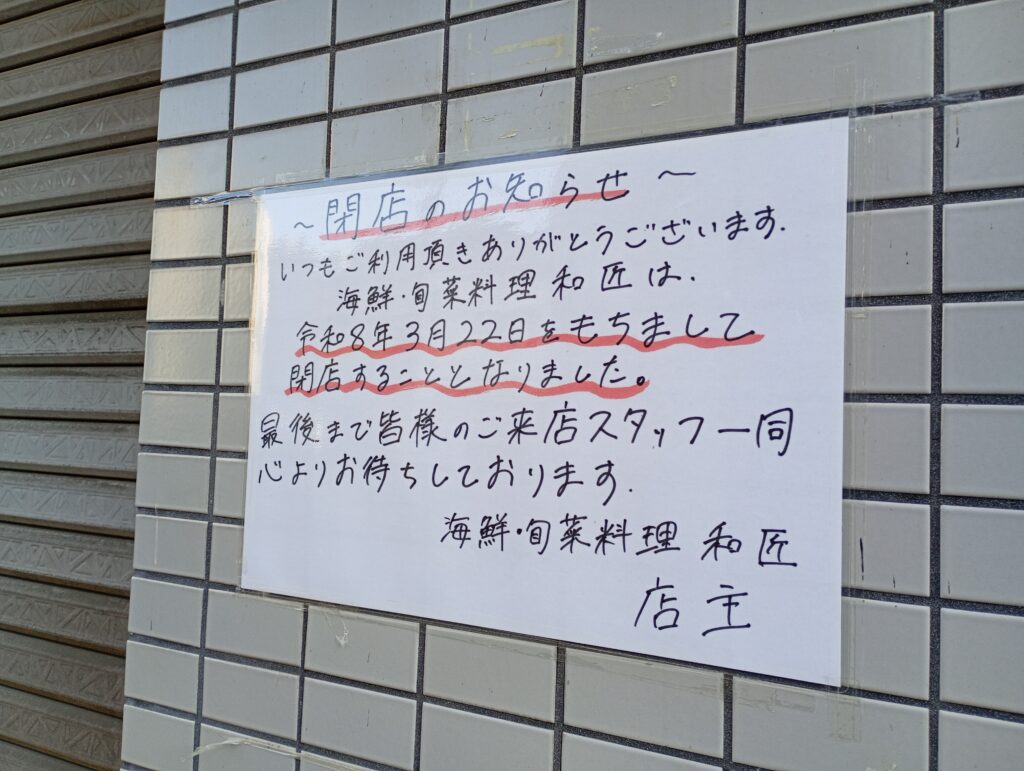 ～閉店のお知らせ～
いつもご利用頂きありがとうございます.
海鮮・旬菜料理 和匠は.
令和8年3月22日をもちまして
閉店することとなりました。
最後まで皆様のご来店スタッフ一同
心よりお待ちしております.
海鮮・旬菜料理 和匠
店主